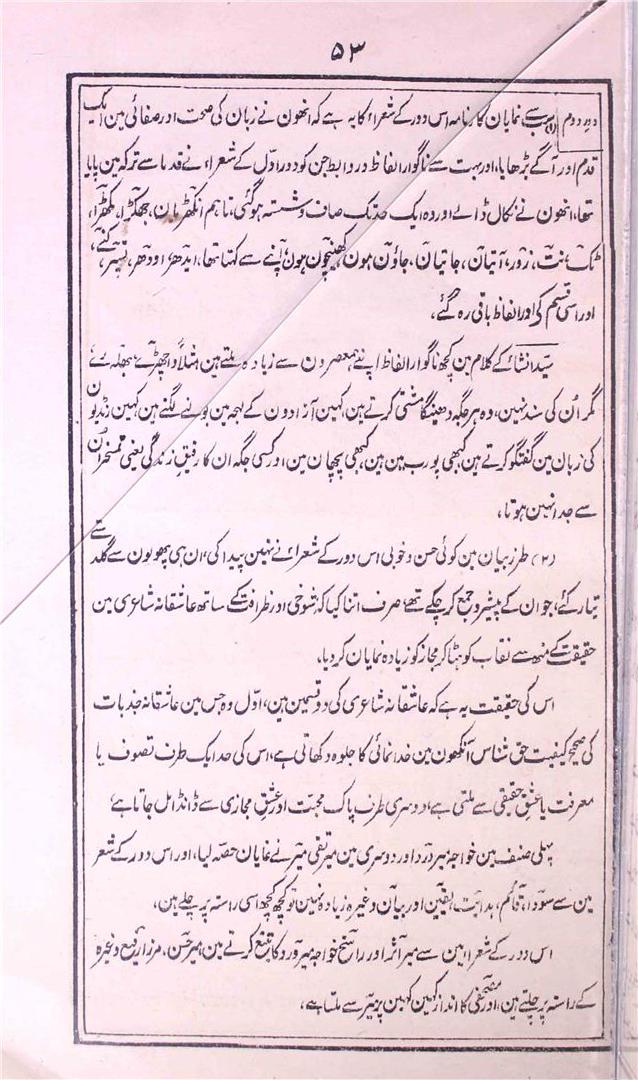 ۵۳
دورِ دوم (۱) سب سے نمایان کارنامہ اس دور کے شعراء کا یہ ہے کہ انھون نے زبان کی صحت اور صفائی مین ایک
قدم اور آگے بڑھایا، اور بہت سے ناگوار الفاظ و روابط جن کو دورِ اوّل کے شعراء نے قدما سے ترکہ مین پایا
تھا، انھون نے نکال ڈالے اور وہ ایک حد تک صاف و شستہ ہوگئی، تاہم انکھڑیان، جھمکڑا، مکھڑا،
ٹک، نت، زور، آتیان، جاتیان، جاؤن ہون، کھینچون ہون، اپنے سے کہتا تھا، ایدھر، اودھر، تسپر، کنے،
اور اسی قسم کی اور الفاظ باقی رہ گئے،
سید انشاء کے کلام مین کچھ ناگوار الفاظ اپنے ہمعصرون سے زیادہ ملتے ہین مثلاً واچھڑے، بھلہ رے
مگر اُن کی سند نہین، وہ ہر جگہ دھینگا مشتی کرتے ہین، کہین آزادون کے لہجہ مین بولنے لگتے ہین کہین رنڈیون
کی زبان مین گفتگو کرتے ہین، کبھی پورب مین ہین، کبھی پچھان مین اور کسی جگہ ان کا رفیقِ زندگی یعنی تمسخر ان
سے جدا نہین ہوتا،
(۲) طرزِ بیان مین کوئی حسن و خوبی اس دور کے شعراء نے نہین پیدا کی، ان ہی پھولون سے گلدستے
تیار کئے، جو ان کے پیشرو جمع کر چکے تھے، صرف اتنا کیا کہ شوخی اور ظرافت کے ساتھ عاشقانہ شاعری مین
حقیقت کے منھ سے نقاب کو ہٹا کر مجاز کو زیادہ نمایان کر دیا،
اس کی حقیقت یہ ہے کہ عاشقانہ شاعری کی دو قسمین ہین، اوّل وہ جس مین عاشقانہ جذبات
کی صحیح کیفیت حق شناس آنکھون مین خدانمائی کا جلوہ دکھاتی ہے، اس کی حد ایک طرف تصوف یا
معرفت یا عشق حقیقی سے ملتی ہے، دوسری طرف پاک محبت اور عشق مجازی سے ڈانڈا مل جاتا ہے،
پہلی صنف مین خواجہ میر درد اور دوسری مین میر تقی میر نے نمایان حصہ لیا، اور اس دور کے شعر
مین سے سودا، قائم، ہدایت، یقین اور بیان وغیرہ زیادہ نہین تو کچھ کچھ اسی راستہ پر چلے ہین،
اس دور کے شعرا مین سے میر اثر اور راسخ خواجہ میر درد کا تتبع کرتے ہین میر حسن، مرزا رفیع وغیرہ
کے راستہ پر چلتے ہین، اور مصحفی کا انداز کہین کہین پر میر سے ملتا ہے،